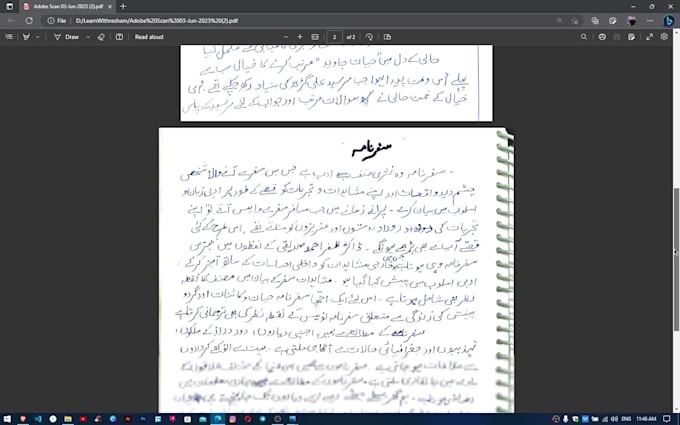 Adobe Scan 03-Jun-2023 (2).pdf
File | D:/LearnWithresham/Adobe%20Scan%2003-Jun-2023%20(2).pdf
Draw
Read aloud
2 of 2
حالی کے دل میں "حیات جاوید" مرتب کرنے کا خیال سب سے
پہلے اُس وقت پیدا ہوا جب سرسید علی گڑھ کی بنیاد رکھ چکے تھے۔ اسی
خیال کے تحت حالی نے کچھ سوالات مرتب اور جواب کے لئے سرسید کے پاس
سفر نامہ
سفر نامہ وہ نثری صنف ہے ادب ہے جس میں سفر سے آنے والا شخص
چشم دید واقعات اور اپنے مشاہدات و تجربات کو قصے کے طور پر ادبی زبان و
اسلوب میں بیان کرے۔ پرانے زمانے میں جب مسافر سفر سے واپس آتے تو اپنے
تجربات کی روداد دوستوں اور عزیزوں کو سناتے تھے۔ اس طرح کے کئی
قصے آپ نے بھی پڑھے ہونگے۔ ڈاکٹر ظفر احمد صدیقی کے لفظوں میں بہترین
سفر نامہ وہی ہوتا ہے جس میں خارجی مشاہدات کو داخلی احساسات کے ساتھ آمیز کر کے
ادبی اسلوب میں پیش کیا گیا ہو۔ مشاہدات سفر کے بیان میں مصنف کا نقطہ
نظر بھی شامل ہوتا ہے۔ اس لئے ایک اچھا سفر نامہ حیات و کائنات اور گرد و
پیش کی زندگی سے متعلق سفر نامہ نویس کے نقطہ نظر کی بھی ترجمانی کرتا ہے
سفر نامے کے مطالعے سے ہمیں اجنبی دیاروں، دور دراز کے ملکوں،
تہذیبوں اور جغرافیائی حالات سے آگاہی ملتی ہے۔ بہت سے انوکھے کرداروں
سے ملاقات ہو جاتی ہے۔
ENG 11:46 AM